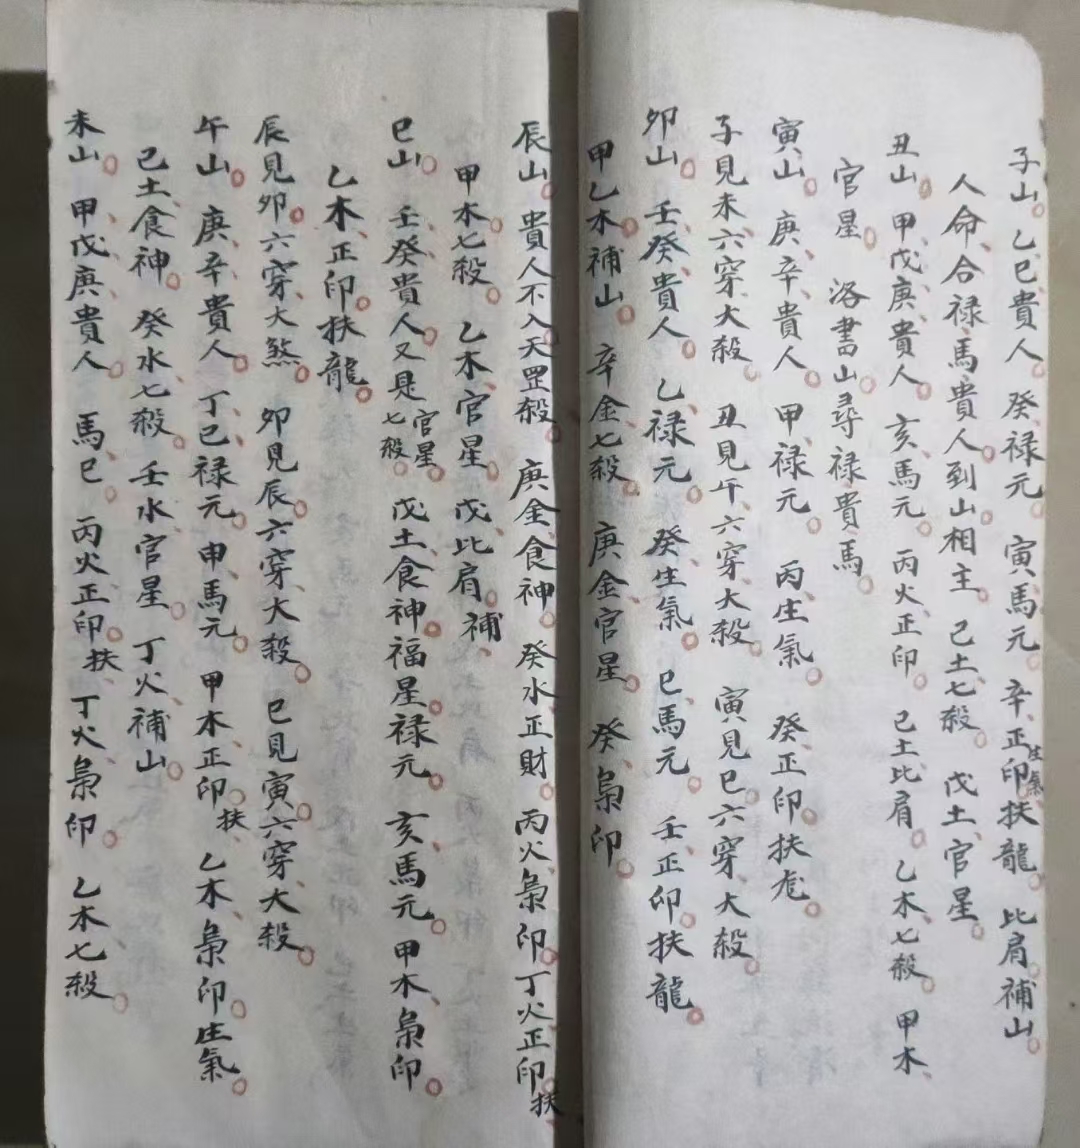 子山。乙巳貴人。癸禄元。寅馬元。辛正印生氣扶龍。比肩補山。
人命合禄馬貴人到山相主。己土七殺。戊土官星。
丑山。甲戊庚貴人。亥馬元。丙火正印。己土比肩。乙木七殺。甲木
官星。洛書山尋禄貴馬。
寅山。庚辛貴人。甲禄元。丙生氣。癸正印扶龙。
子見未六穿大殺。丑見午六穿大殺。寅見巳六穿大殺。
卯山。壬癸貴人。乙禄元。癸生氣。巳馬元。壬正印扶龍。
甲乙木補山。辛金七殺。庚金官星。癸梟印。
辰山。貴人不入天罡殺。庚金食神。癸水正財。丙火梟印。丁火正印扶。
甲木七殺。乙木官星。戊比肩補。
巳山。壬癸貴人。又是官星七殺。戊土食神福星禄元。亥馬元。甲木梟印。
乙木正印。扶龍。
辰見卯。六穿大煞。卯見辰。六穿大殺。巳見寅。六穿大殺。
午山。庚辛貴人。丁己禄元。申馬元。甲木正印。扶乙木梟印。生氣。
己土食神。癸水七殺。壬水官星。丁火補山。
未山。甲戊庚貴人。馬巳。丙火正印。扶丁火梟印。乙木七殺。